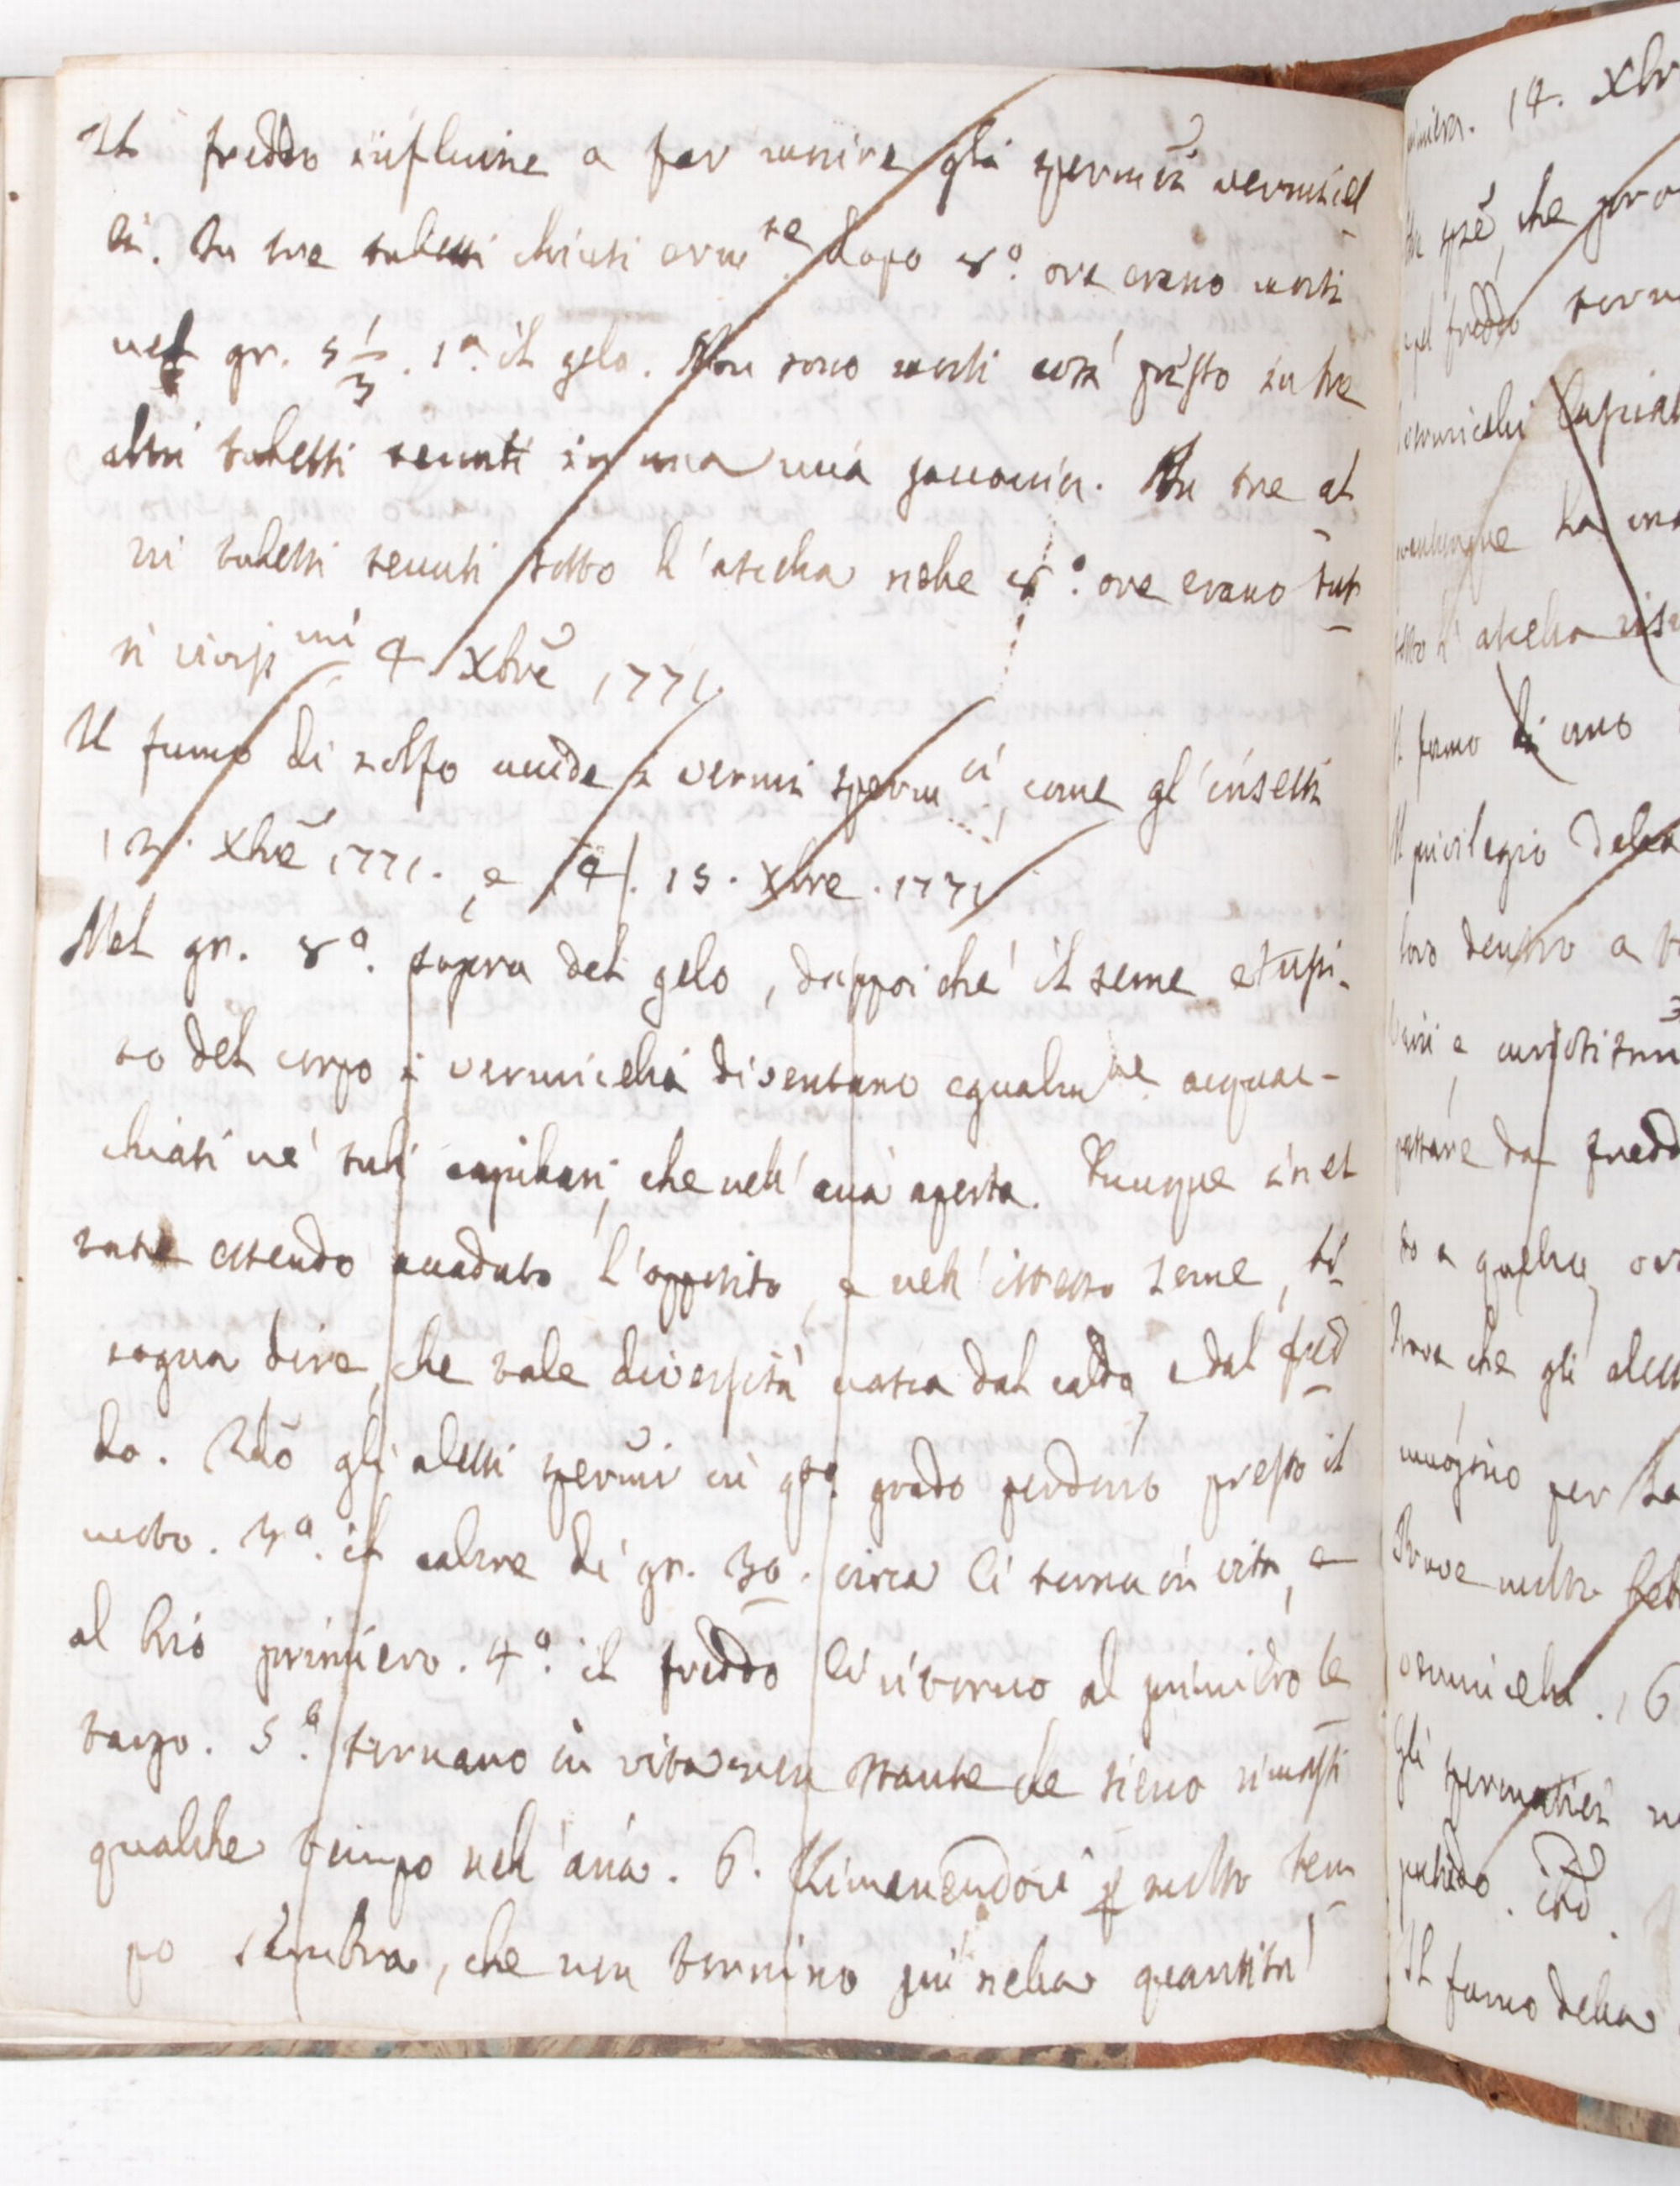 Il freddo influisce a far morire gli spermci vermicel
li. In tre tubetti chiusi erm.te dopo 8.o ore erano morti
nel gr. 5 1/3. 1.a il gelo. Non sono morti così presto in tre
altri tubetti tenuti in una mia In tre al
tri tubetti tenuti sotto l'ascella nelle 8.o ore erano tut
ti viviss.mi 4 Xbre 1771.
Il fumo di zolfo uccide i vermi sperm.ci, come gl'insetti
13. Xbre 1771. e 14. 15. Xbre. 1771
Nel gr. 8.o sopra del gelo, dappoiché il seme è usci-
to del corpo i vermicelli diventano egualm.te acquac-
chiati ne' tubi capillari, che nell'aria aperta. Dunque in el
tate essendo accaduto l'opposito, e nell'istesso seme, bi
sogna dire, che tale diversità nasca dal caldo, e dal fred
do. 2do gli aletti spermci in qto. grado perdono presto il
moto. 3.o il calore di gr. 30. circa li torna in vita, e
al brio primiero. 4.o il freddo li ritorna al primiero le
targo. 5.o tornano in vita non ostante che sieno rimasti
qualche tempo nell'aria. 6. Rimanendovi p molto tem
po sembra, che non tornino più nella quantità
14. Xbr
che pro
nel freddo
vermicelli
la
sotto l'ascella
Il fumo di uno
Il privilegio della
loro dentro a
da fredd
do a quella
Prova che gli
per la
Prove molte
vermicelli. 6
gli spermatici
putrido.
Il fumo della